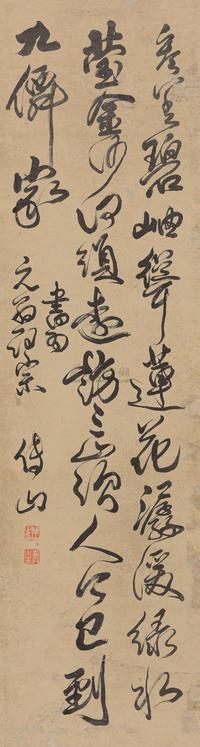 參差碧岫聳蓮花潺湲綠水
瑩金沙何須遠訪三山路人今已到
九僊家
書為
元翁詞宗
傅山